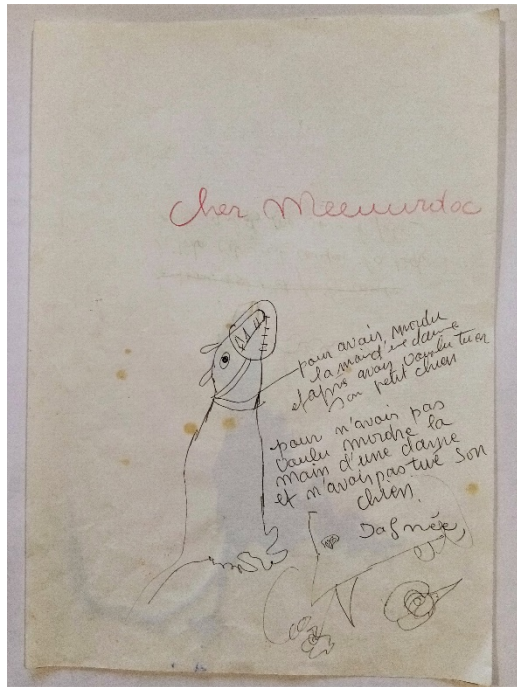 cher Meeuurdoc
pour avais mordu
la main d'une dame
et apris avais voulu tuer
son petit chien
pour n'avais pas
voulu mordre la
main d'une dame
et n'avais pas tué son
chien.
Dafnée